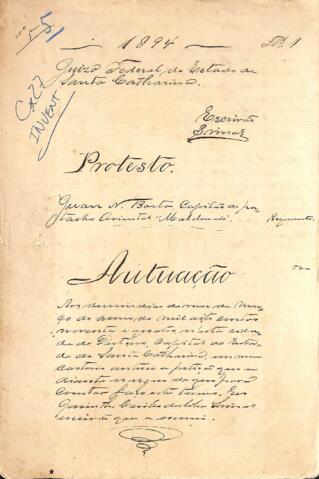 55
1894
Fls. 1
Juizo Federal do Estado de
Santa Catharina.
CX27
INVENT
Escrivão
Protesto.
Juan N. Capitão do pa
tacho "Maldonado" Requerente
Autuação
Aos dias do mez de Mar
ço do anno de mil oito centos
noventa e quatro, nesta cida
de do Desterro, Capital do Estado
de Santa Catharina, em meu
cartorio autuei a petição que a
diante se segue do que para
constar faço este termo. Eu
escrivão que o escrevi.